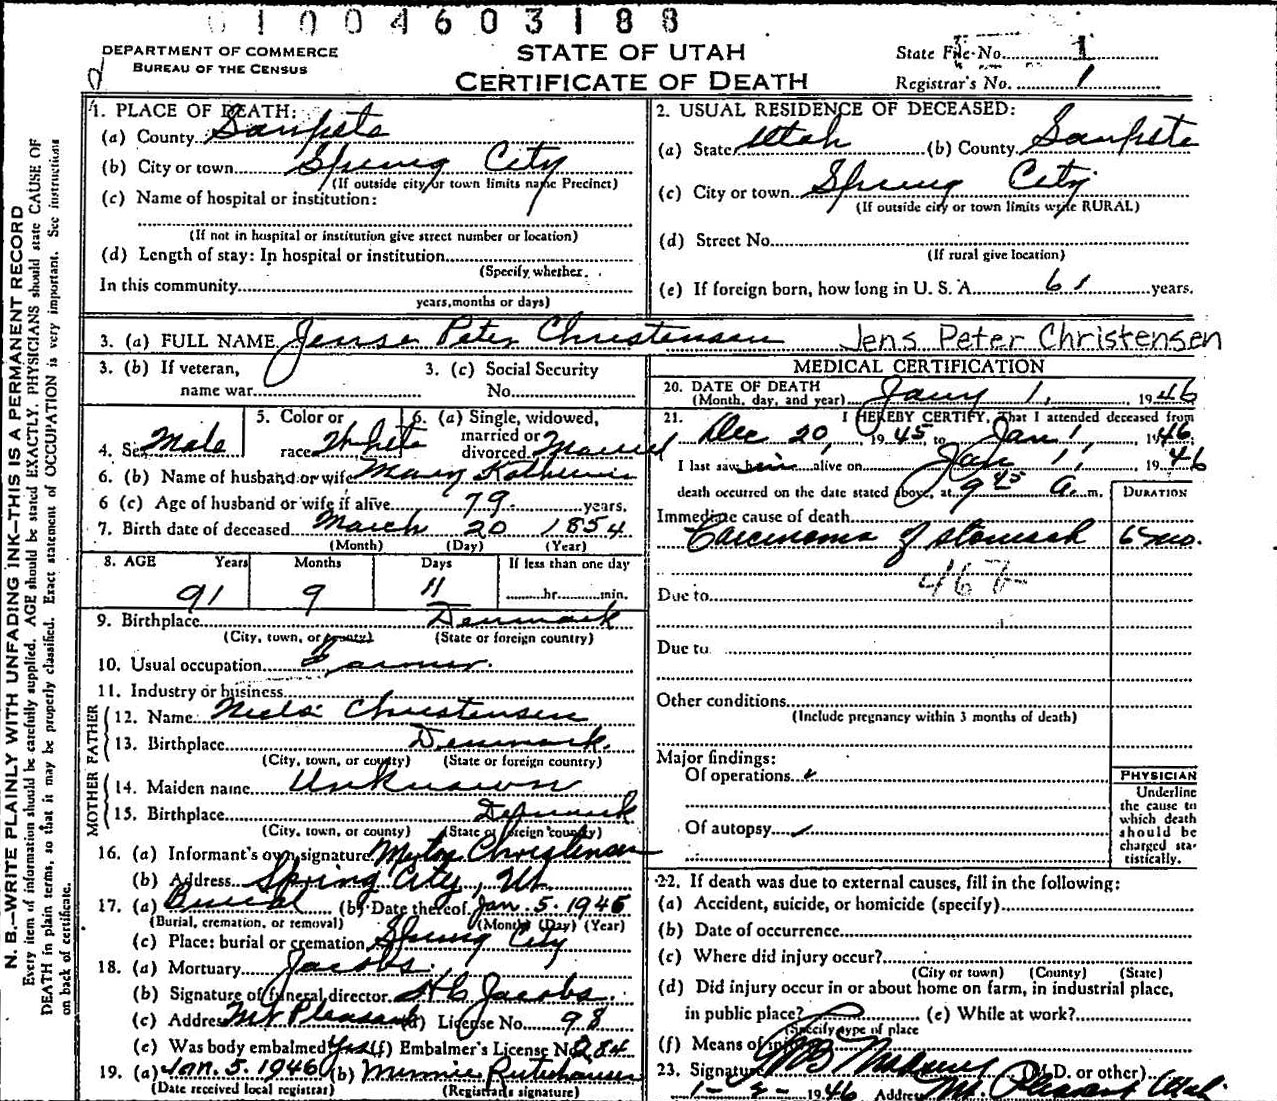 1004603188
DEPARTMENT OF COMMERCE
BUREAU OF THE CENSUS
STATE OF UTAH
CERTIFICATE OF DEATH
State File No. 1
Registrar's No. 1
N. B.—WRITE PLAINLY WITH UNFADING INK—THIS IS A PERMANENT RECORD
Every item of information should be carefully supplied. AGE should be stated EXACTLY. PHYSICIANS should state CAUSE OF
DEATH in plain terms, so that it may be properly classified. Exact statement of OCCUPATION is very important. See instructions
on back of certificate.
1. PLACE OF DEATH:
(a) County Sanpete
(b) City or town Spring City
(If outside city or town limits name Precinct)
(c) Name of hospital or institution:
(If not in hospital or institution give street number or location)
(d) Length of stay: In hospital or institution
(Specify whether
In this community
years, months or days)
2. USUAL RESIDENCE OF DECEASED:
(a) State Utah (b) County Sanpete
(c) City or town Spring City
(If outside city or town limits write RURAL)
(d) Street No.
(If rural give location)
(e) If foreign born, how long in U. S. A. 61 years.
3. (a) FULL NAME Jense Peter Christensen Jens Peter Christensen
3. (b) If veteran, name war
3. (c) Social Security No.
4. Sex Male
5. Color or race White
6. (a) Single, widowed, married or divorced Married
6. (b) Name of husband or wife Mary Katherine
6 (c) Age of husband or wife if alive 79 years.
7. Birth date of deceased March 20 1854
(Month) (Day) (Year)
8. AGE Years Months Days If less than one day
91 9 11 hr. min.
9. Birthplace Denmark
(City, town, or county) (State or foreign country)
10. Usual occupation Farmer.
11. Industry or business
FATHER
12. Name Niels Christensen
13. Birthplace Denmark.
(City, town, or county) (State or foreign country)
MOTHER
14. Maiden name Unknown
15. Birthplace Denmark
(City, town, or county) (State or foreign country)
16. (a) Informant's own signature Christensen
(b) Address Spring City, Ut.
17. (a) Burial (b) Date thereof Jan. 5. 1946
(Burial, cremation, or removal) (Month) (Day) (Year)
(c) Place: burial or cremation Spring City
18. (a) Mortuary Jacobs.
(b) Signature of funeral director Jacobs.
(c) Address Mt Pleasant (d) License No. 98
(e) Was body embalmed Yes (f) Embalmer's License No. 284
19. (a) Jan. 5. 1946 (b) Minnie
(Date received local registrar) (Registrar's signature)
MEDICAL CERTIFICATION
20. DATE OF DEATH
(Month, day, and year) Jany 1, 1946
21. I HEREBY CERTIFY, That I attended deceased from
Dec 20, 1945 to Jan 1, 1946
I last saw him alive on Jan 1, 1946
death occurred on the date stated above, at 9 45 a. m.
DURATION
Immediate cause of death
Carcinoma of stomach 6 mo.
Due to
Due to
Other conditions
(Include pregnancy within 3 months of death)
Major findings:
Of operations
Of autopsy
PHYSICIAN
Underline
the cause to
which death
should be
charged sta-
tistically.
22. If death was due to external causes, fill in the following:
(a) Accident, suicide, or homicide (specify)
(b) Date of occurrence
(c) Where did injury occur?
(City or town) (County) (State)
(d) Did injury occur in or about home on farm, in industrial place,
in public place? (e) While at work?
(Specify type of place
(f) Means of injury
23. Signature (M.D. or other)
1946 Address Mt Pleasant Utah